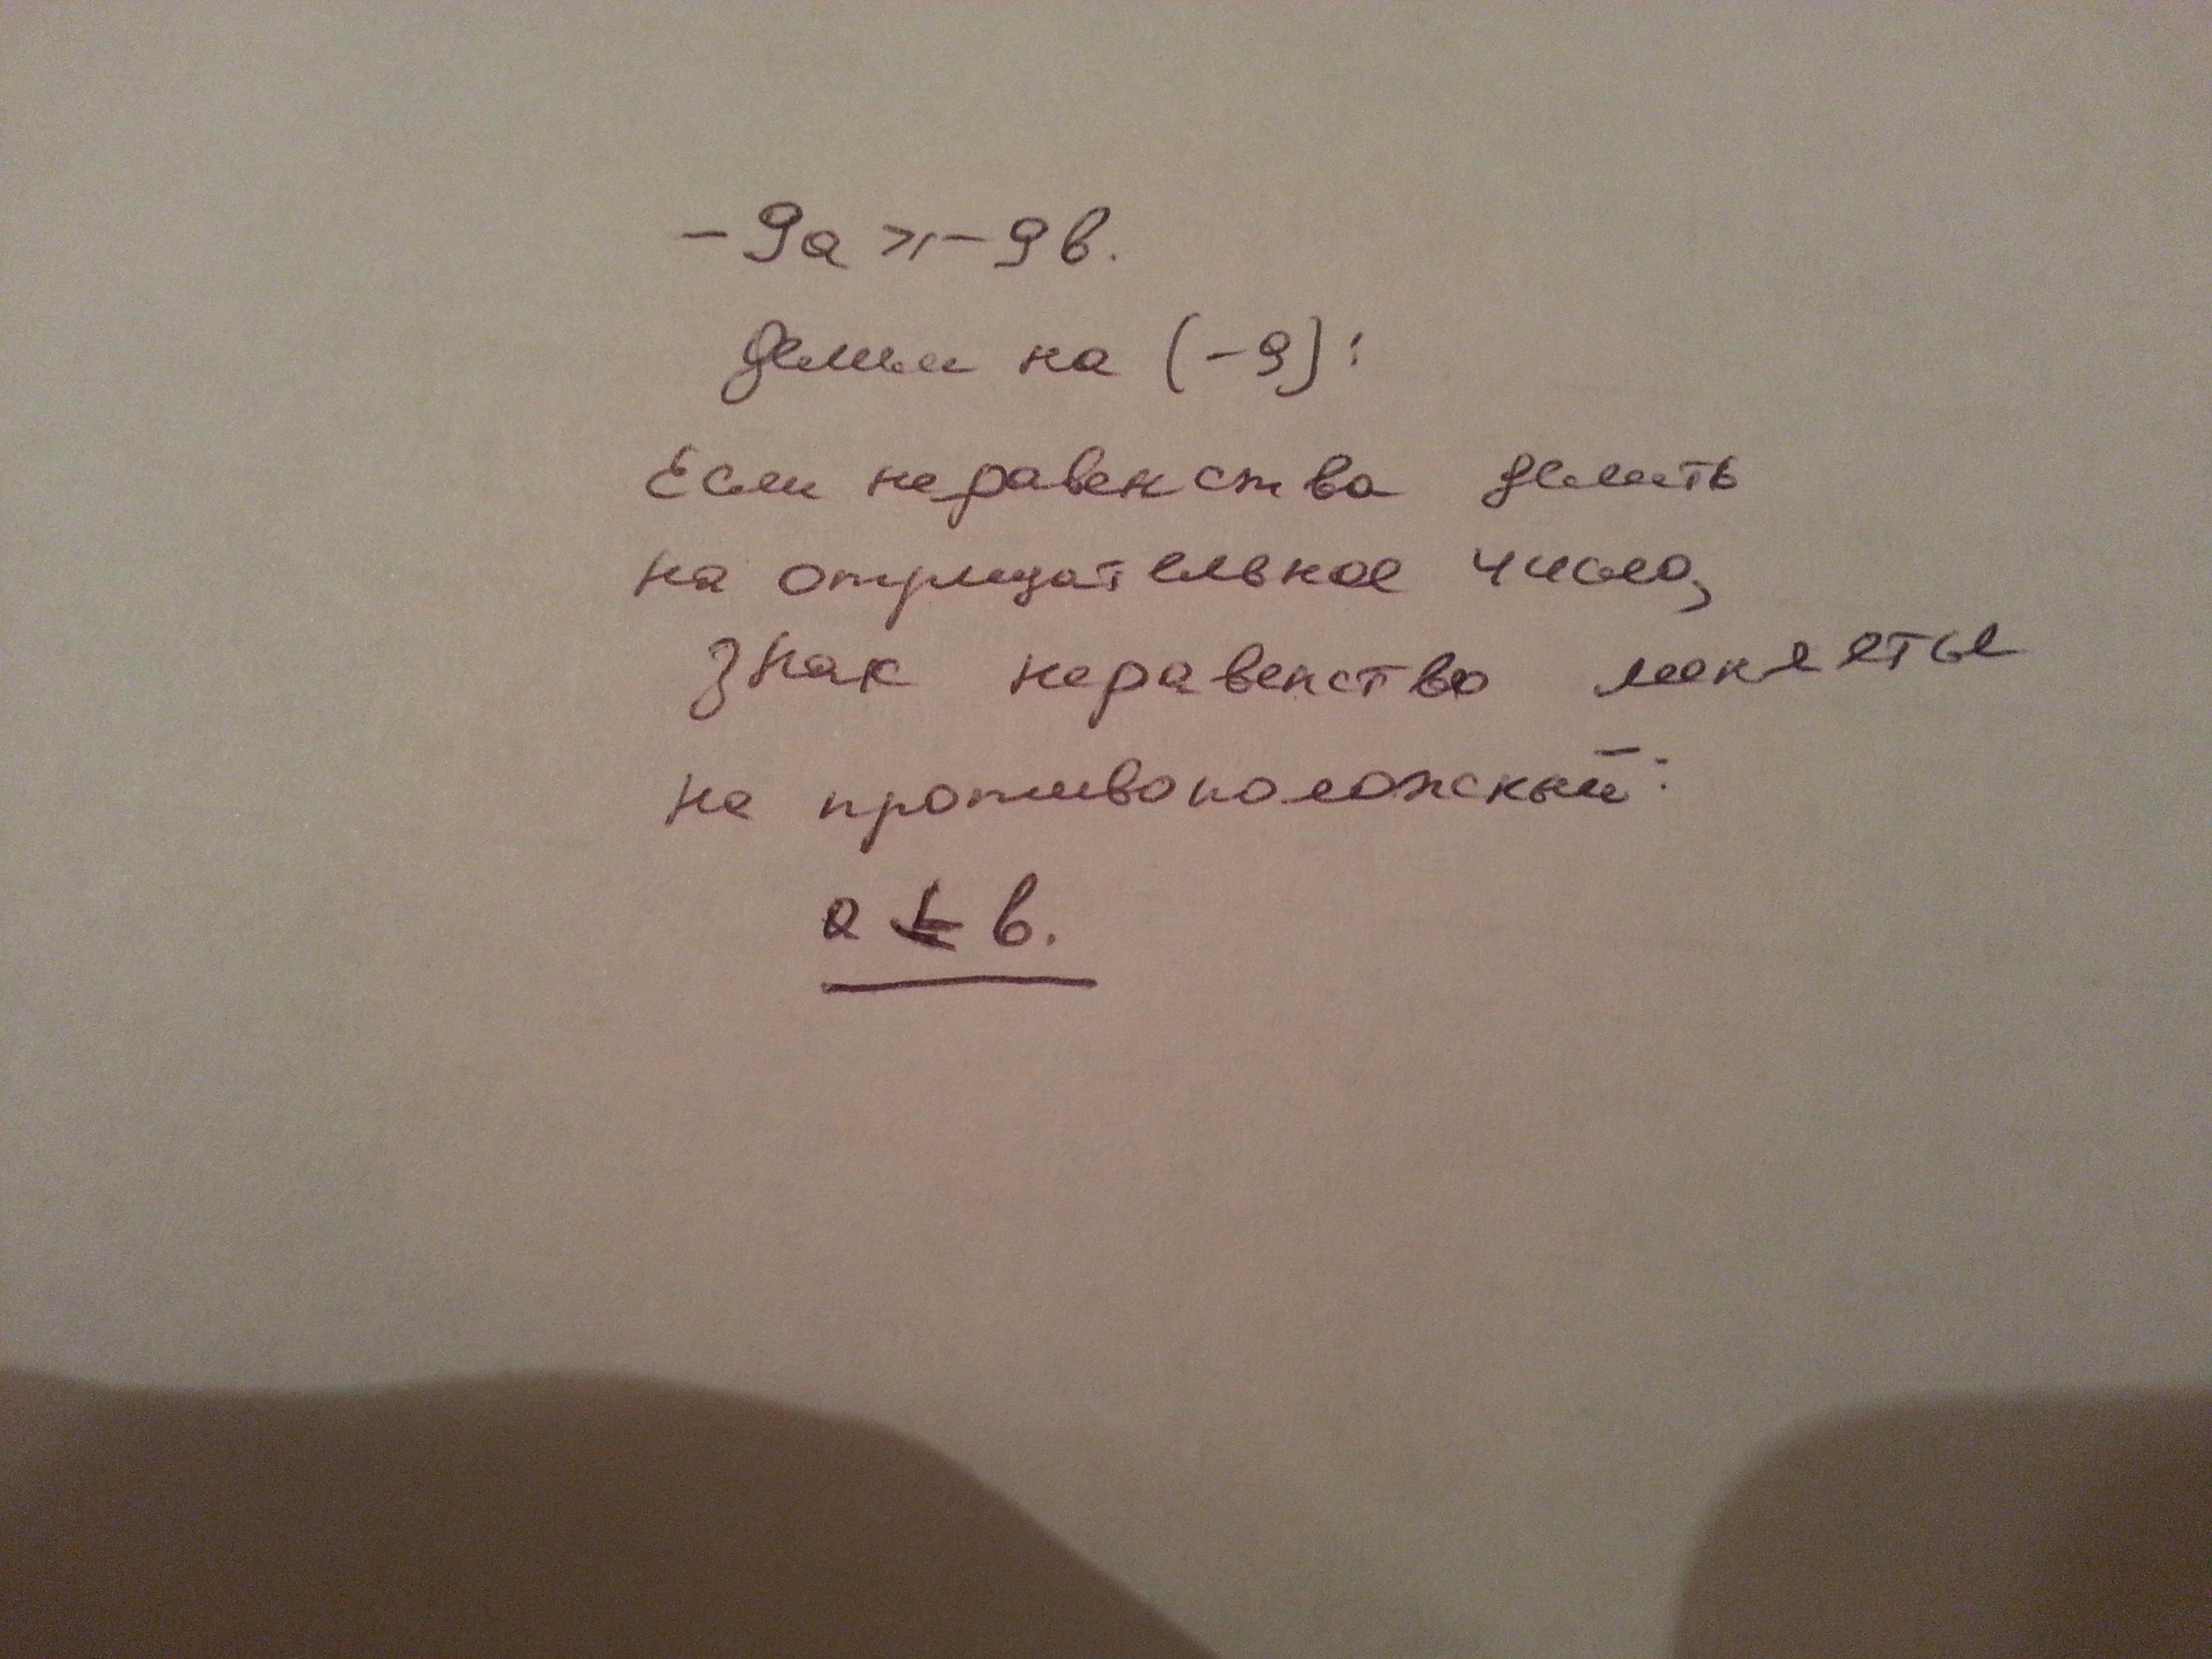 -9а ⩾ -9в.
делим на (-9):
Если неравенства делить
на отрицательное число,
знак неравенство меняется
на противоположный:
а ⩽ в.